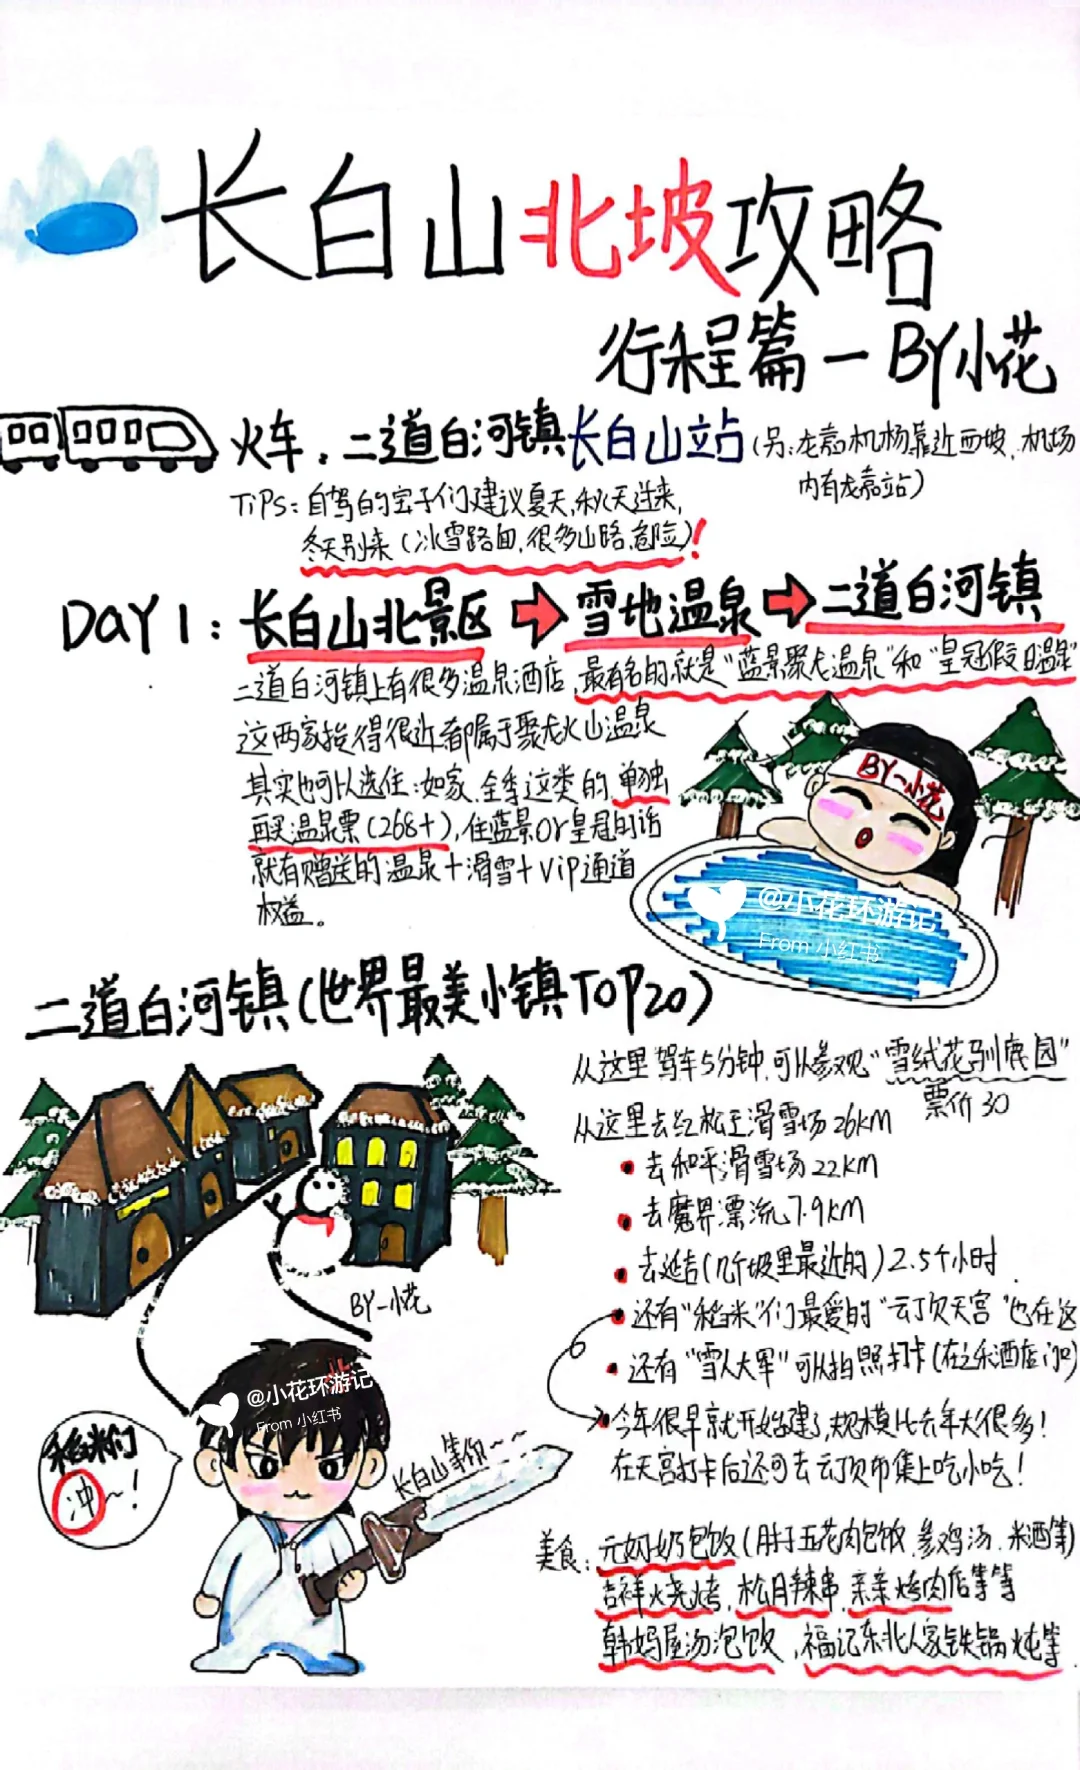 长白山北坡攻略
行程篇 — BY小花
火车：二道白河镇长白山站(另:龙嘉机场靠近西坡,机场
内有龙嘉站)
TiPS：自驾的宝子们建议夏天,秋天进来,
冬天别来(冰雪路面,很多山路,危险)!
DAY1：长白山北景区➡雪地温泉➡二道白河镇
二道白河镇上有很多温泉酒店,最有名的就是"蓝景聚龙温泉"和"皇冠假日温泉"
这两家挨得很近都属于聚龙火山温泉
其实也可以选住:如家.全季这类的,单独
再买温泉票(268+),住蓝景or皇冠的话
就有赠送的温泉+滑雪+Vip通道
权益。
BY一小花
@小花环游记
From 小红书
二道白河镇(世界最美小镇TOP20)
从这里驾车5分钟,可以参观"雪绒花驯鹿园"
票价30
从这里去红松王滑雪场26KM
•去和平滑雪场22KM
•去魔界漂流7.9KM
•去延吉(几个坡里最近的)2.5个小时.
•还有"稻米"们最爱的"云顶天宫"也在这
•还有"雪人大军"可以拍照打卡(在之禾酒店门口)
BY一小花
•今年很早就开始建了,规模比去年大很多!
在天宫打卡后还可去云顶市集上吃小吃!
@小花环游记
From 小红书
稻米们
冲~!
长白山等你~~
美食:元奶奶包饭(肚子五花肉包饭.参鸡汤.米酒等)
吉祥火烧烤,松月辣串,亲亲烤肉店等等
韩妈屋汤泡饭,福记东北人家铁锅炖等